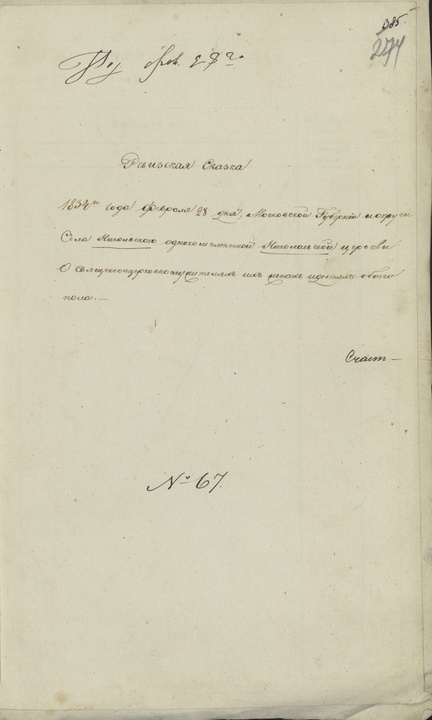 385.
274
Ревизская Сказка
1834го года февраля 28 дня, Московской Губернии и округи
Села Никольского одноименной Николаевской церкви
О священноцерковнослужителях их женах и детях обоего
пола. —
Счет —
№ 67.